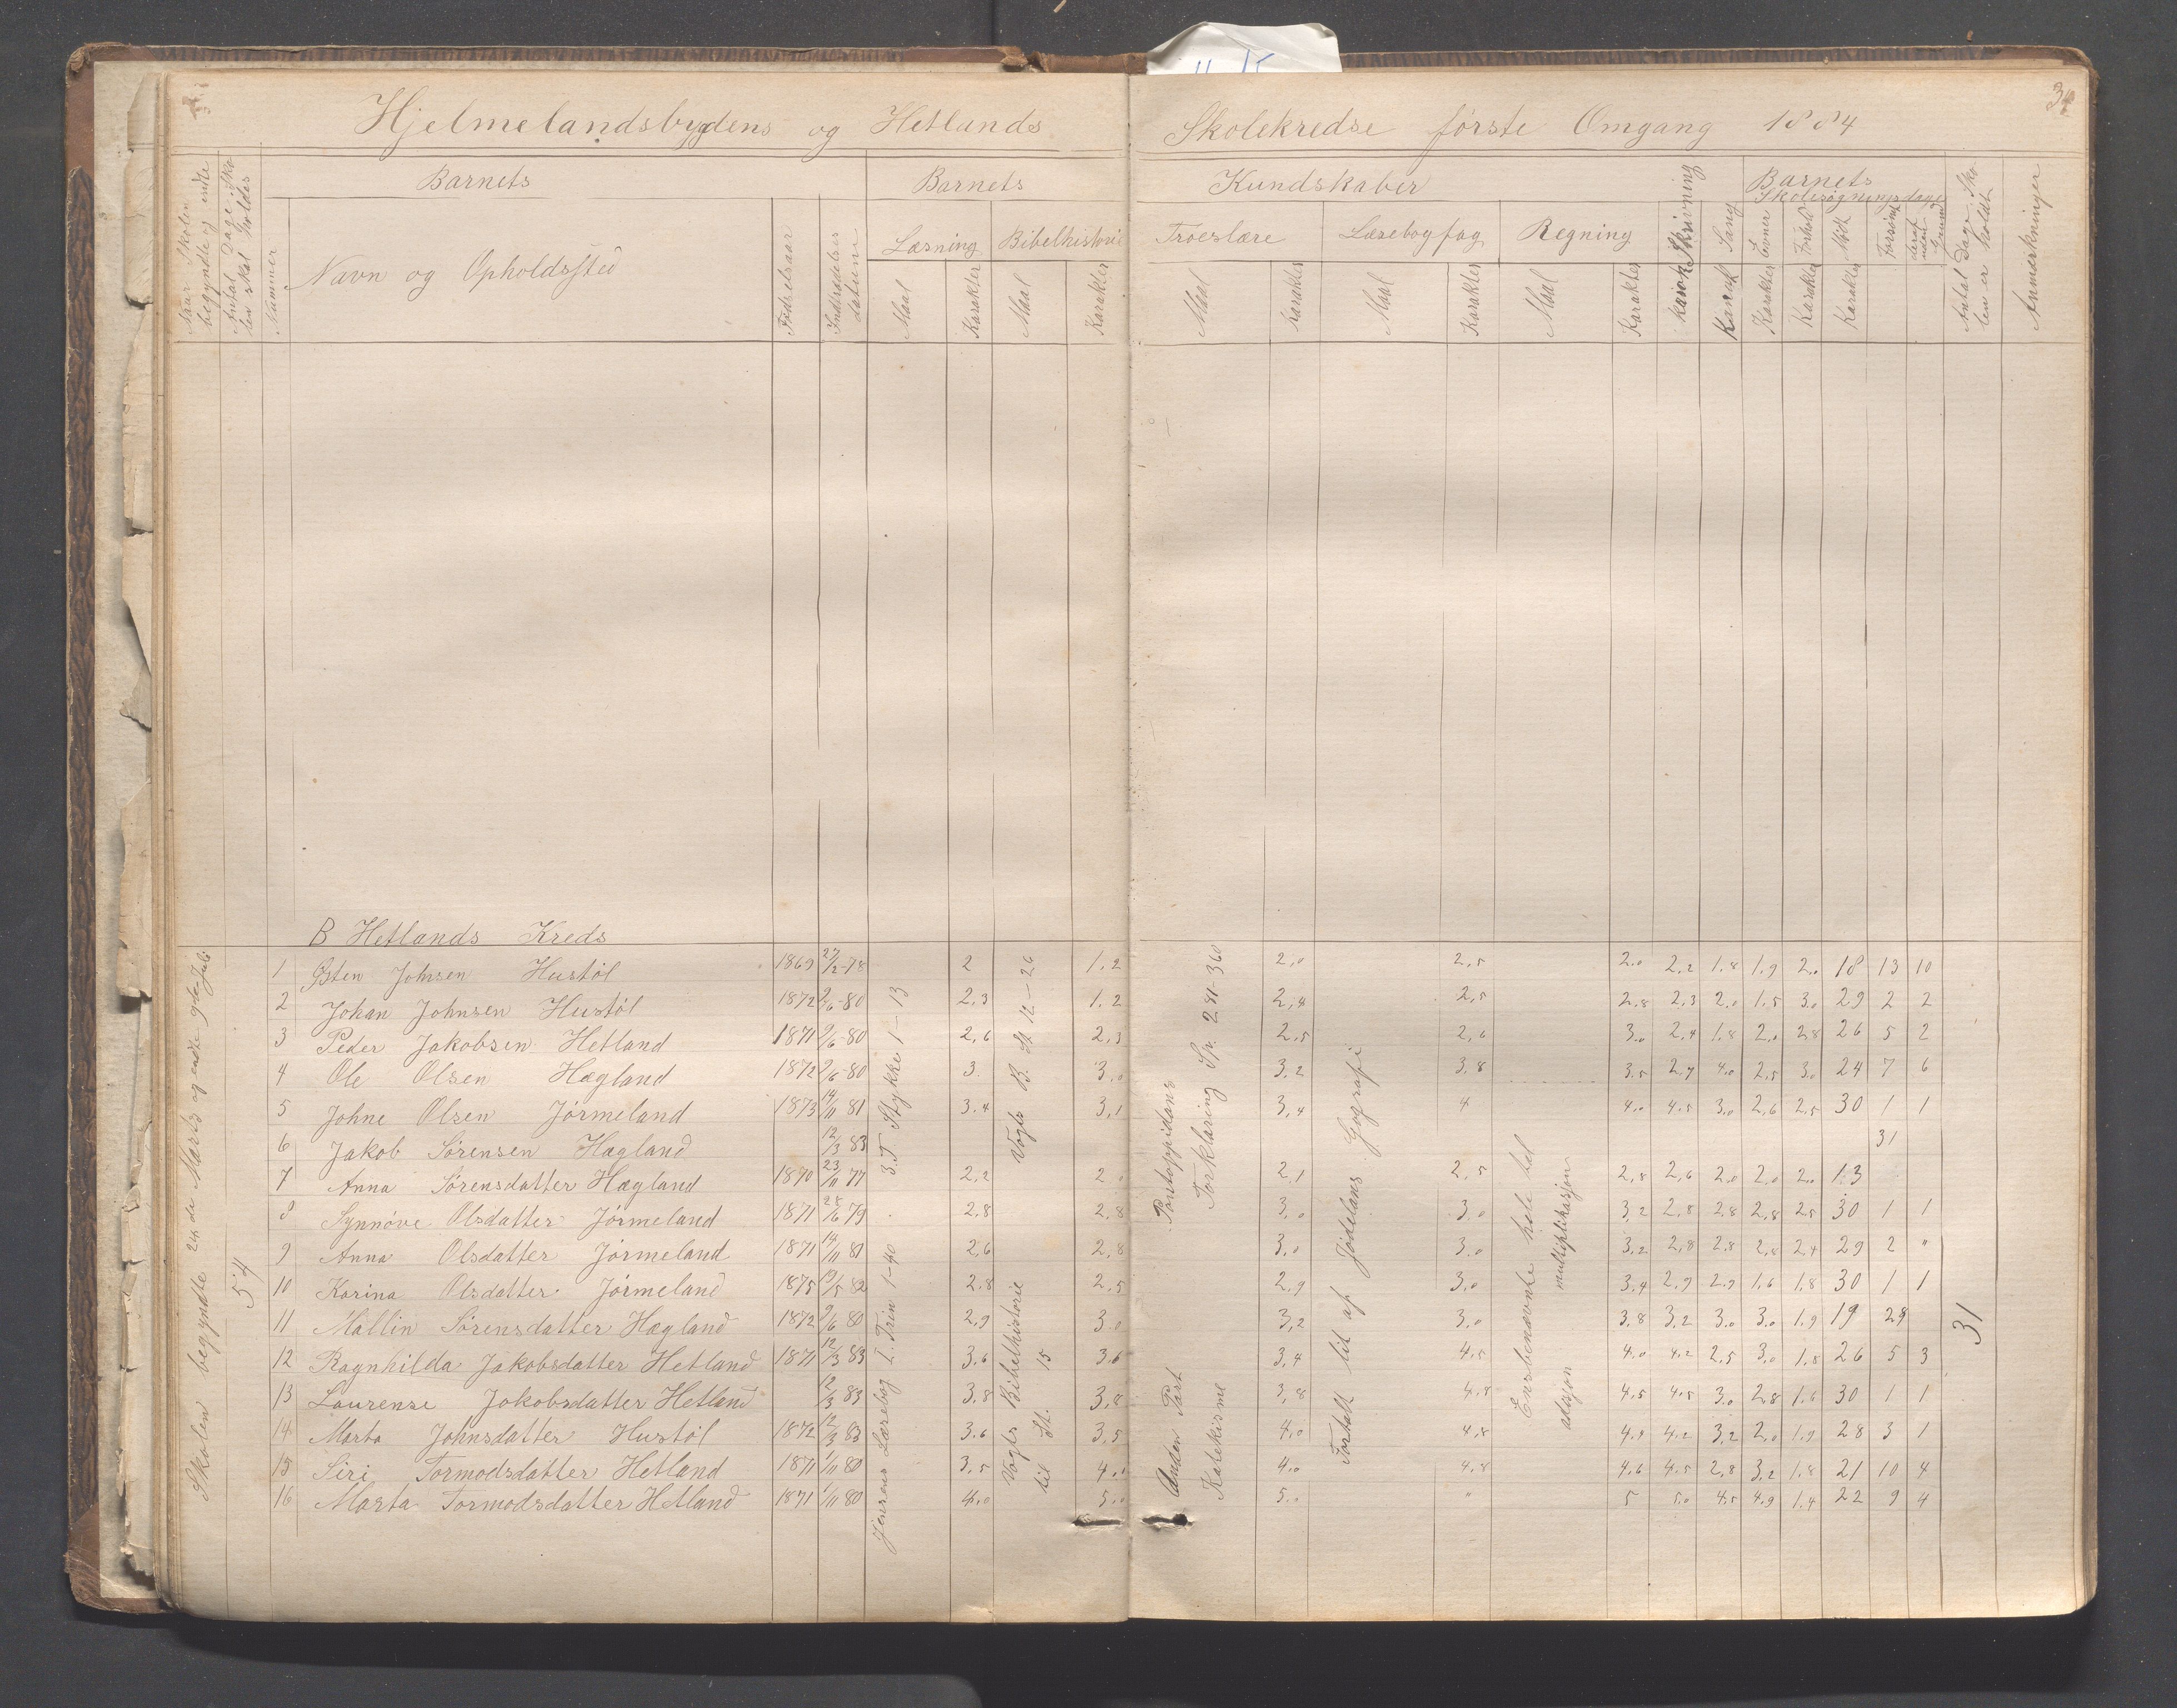 Hjelmelandsbygdens og Hetlands Skolekredse første Omgang 1884
34
Naar Skolen begyndte og endte
Antal Dage Skolen skal holdes
Nummer
Barnets
Navn og Opholdssted
Fødselsaar
Indtrædelsesdatum
Barnets Kundskaber
Læsning
Maal
Karakter
Bibelhistorie
Maal
Karakter
Troeslære
Maal
Karakter
Læsebogfag
Maal
Karakter
Regning
Maal
Karakter
Skrivning
Karak
Sang
Karak
Evner
Karakter
Forhold
Karakter
Barnets Skolesøgningsdage
Mødt
Forsømt
deraf uden Grund
Antal Dage Skolen er holdt
Anmærkninger
B Hetlands Kreds
Skolen begyndte 24de Marts og endte 9de Juli
54
1 Østen Johnsen Hustøl 1869 27/2-78 2 1.2 2,0 2,5 2.0 2,2 1.8 1,9 2.0 18 13 10
2 Johan Johnsen Hustøl 1872 9/6-80 2,3 1.2 2,4 2,5 2,8 2,3 2.0 1,5 3.0 29 2 2
3 Peder Jakobsen Hetland 1871 9/6-80 2,6 2,3 2,5 2,6 3.0 2,4 1.8 2.0 2,8 26 5 2
4 Ole Olsen Hægland 1872 9/6-80 3. 3.0 3,2 3,8 3.5 2,7 4.0 2,5 3.0 24 7 6
5 Johne Olsen Jørmeland 1873 14/11 81 3.4 3,1 3,4 4 4.0 4.5 3.0 2,6 2,5 30 1 1
6 Jakob Sørensen Hægland 12/3 83 31
7 Anna Sørensdatter Hægland 1870 23/11 77 2,2 2.0 2,1 2,5 2,8 2,6 2.0 2.0 2.0 13
8 Synnøve Olsdatter Jørmeland 1871 28/6 79 2.8 2,8 3,0 3.0 3,2 2,8 2.8 2,8 2,5 30 1 1
9 Anna Olsdatter Jørmeland 1871 14/11 81 2,6 2,8 3,0 3.0 3,2 2,8 2.8 2,8 2,4 29 2 "
10 Karina Olsdatter Jørmeland 1875 2.8 2,5 2,9 3.0 3,4 2,9 2.9 1,6 1,8 30 1 1
11 Mallin Sørensdatter Hægland 1872 9/6 80 2,9 3.0 3,2 3.0 3,8 3,2 3.0 3.0 1,9 19 29
12 Ragnhilda Jakobsdatter Hetland 1871 12/3 83 3.6 3.6 3,4 4.5 4.0 4.2 2,5 3.0 1.8 26 5 3
13 Laurense Jakobsdatter Hetland 12/3 83 3,8 3,8 3,8 4.8 4,5 4.5 3.0 2,8 1.6 30 1 1
14 Marta Johnsdatter Hustøl 1872 12/3 83 3.6 3,5 4,0 4,8 4.4 4.2 3,2 2.0 1.9 28 3 1
15 Siri Tormodsdatter Hetland 1871 1/11 80 3,5 4.0 4.0 4.8 4.6 4.5 2,8 3,2 1.8 21 10 4
16 Marta Tormodsdatter Hetland 1871 1/11 80 4.0 5.0 5.0 " 5 5.0 4.5 4.9 1.4 22 9 4
3. T. Stykke 1-13
Jensens Læsebog I. Trin 1-40
Vogts B. St. 12-26
Vogts Bibelhistorie til St. 15
Pontoppidans Forklaring Sp. 281-360
Anden Part Katekisme
Fortalt lit af Jødelans Gografi
Ensbenævnte hele tal multiplikasjon adisjon
31